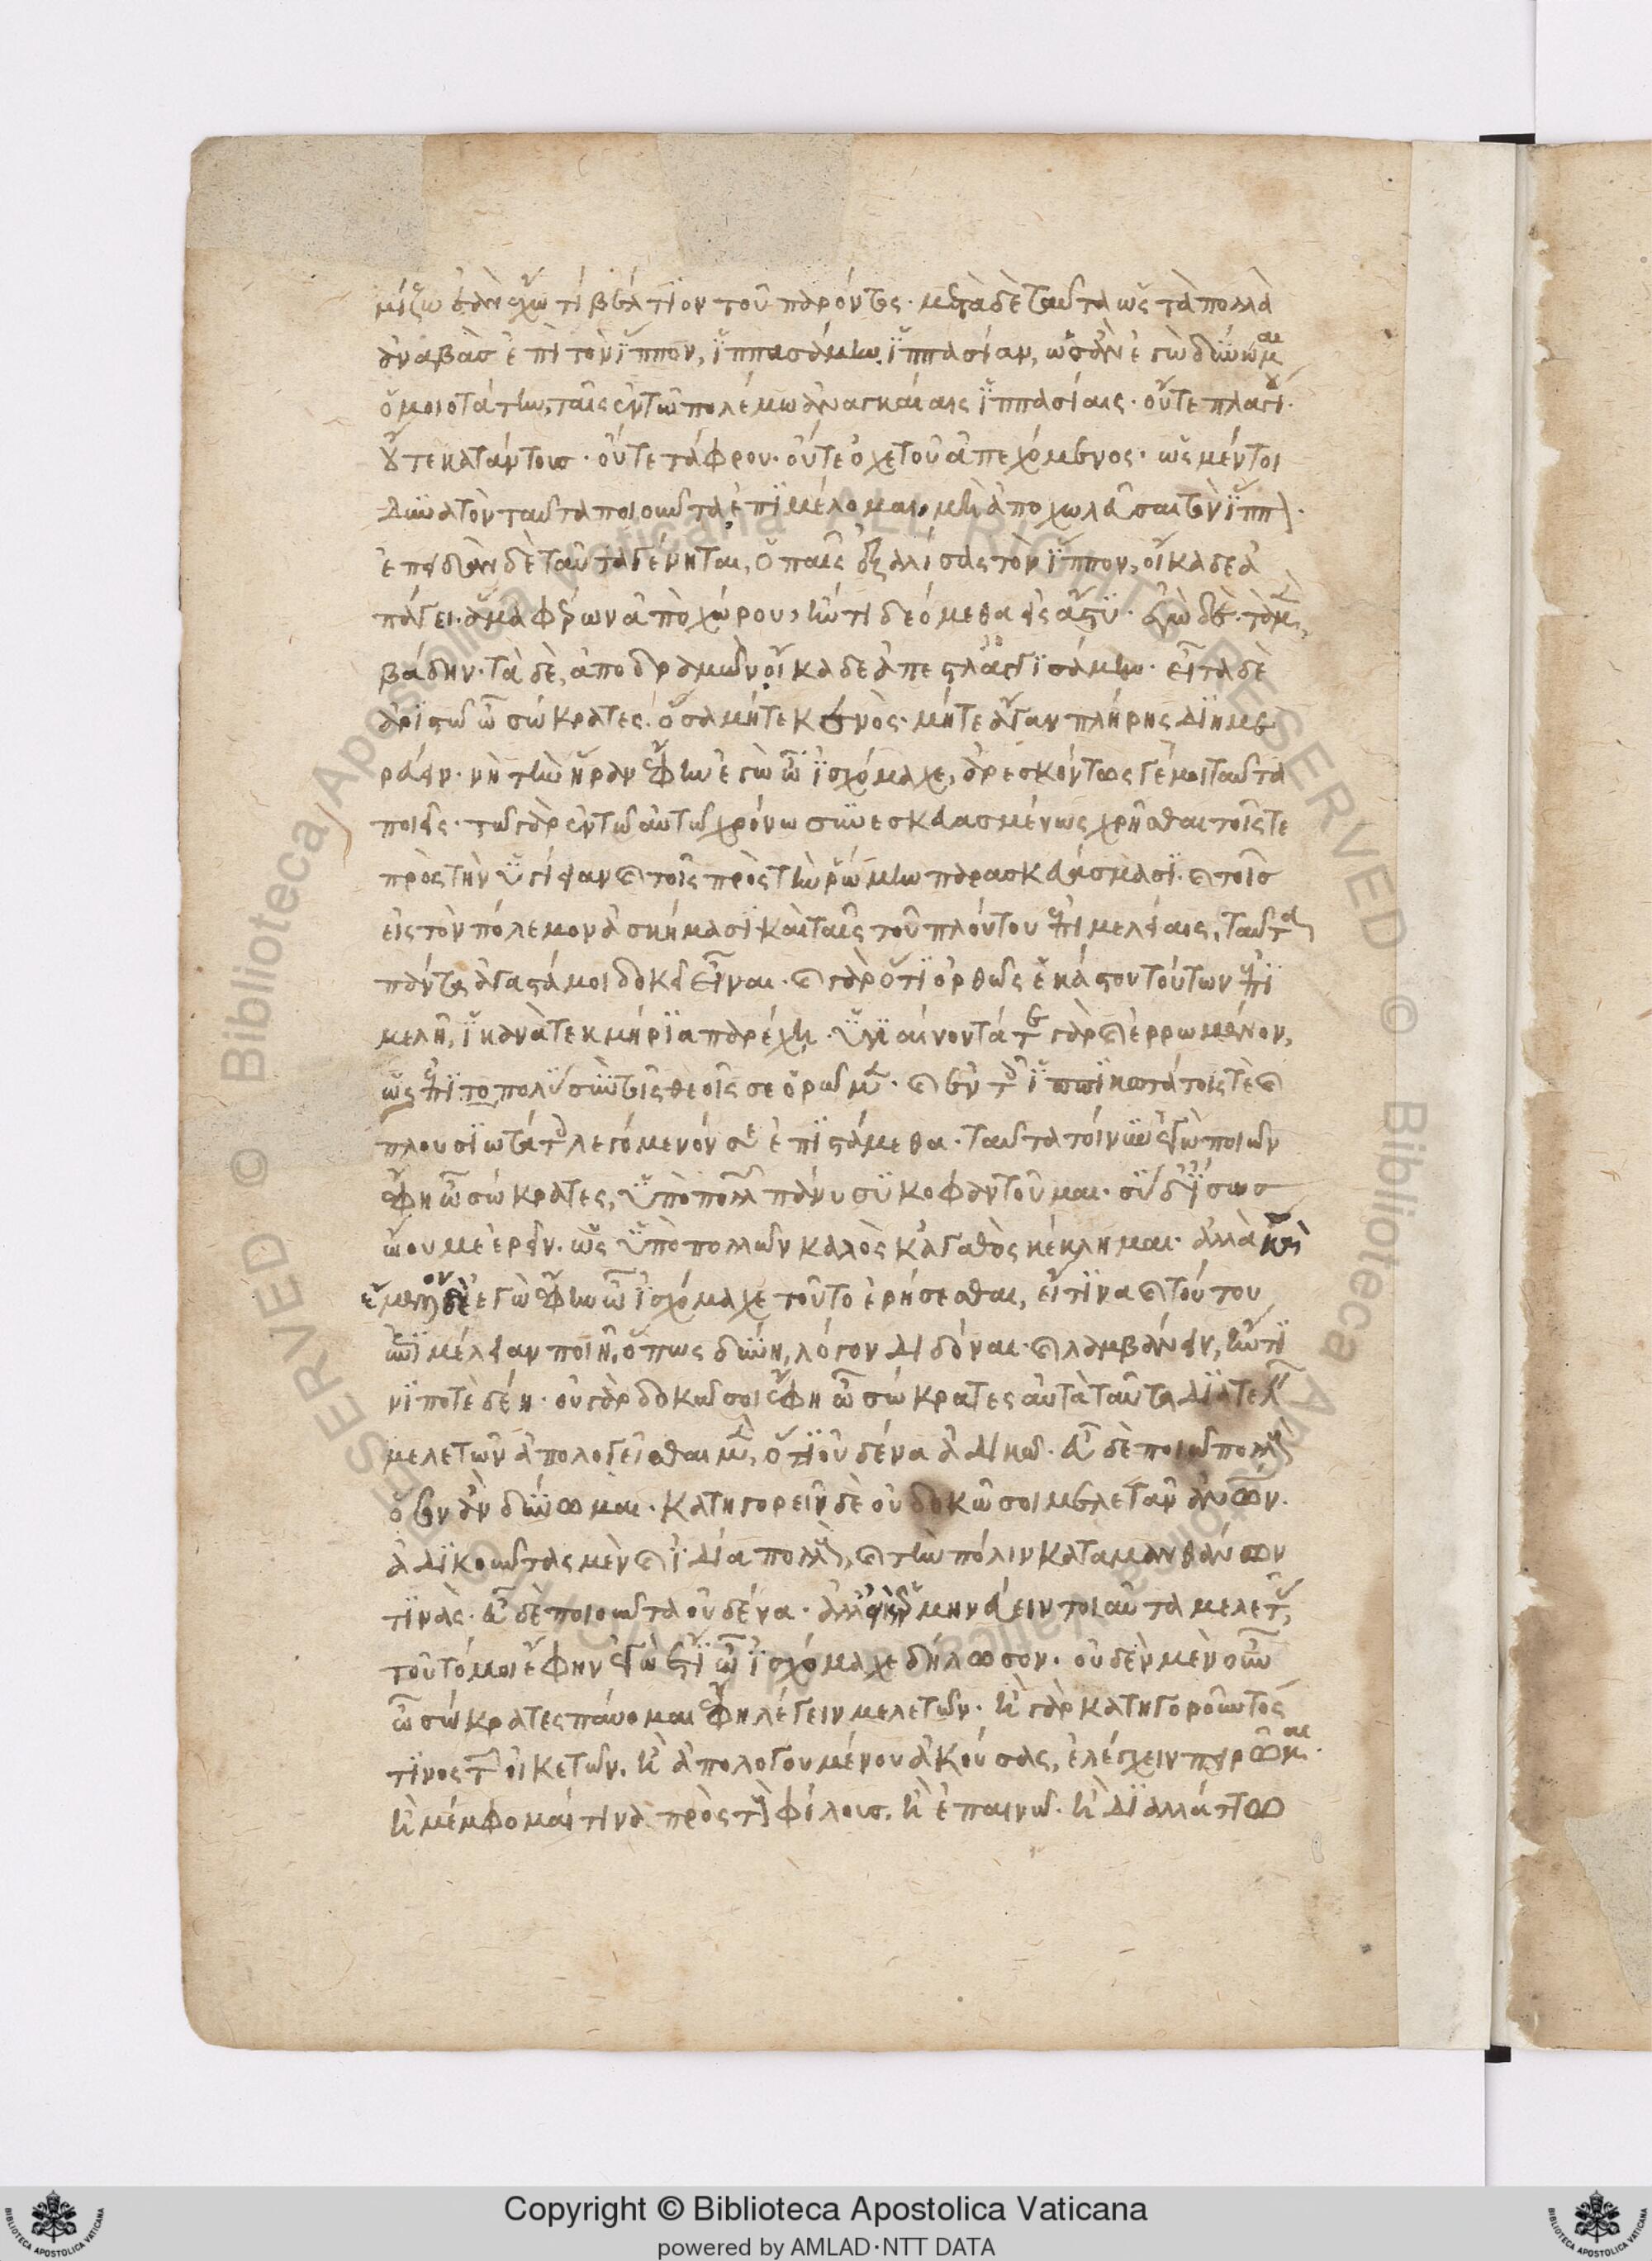 μίζω ἐὰν ἔχω τί βέλτϊον τοῦ παρόντος· μετὰ δὲ ταῦτα ὡς τὰ πολλὰ
ἀναβὰσ ἐπὶ τὸν ἵππον, ἱππασάμην ἱππασίαν, ὡς ἂν ἐγὼ δύνωμαι
ὁμοιοτάτην, ταῖς ἐν τῶ πολέμω ἀναγκαίαις ἱππασίαις· οὔτε πλαγίου·
οὔτε κατάντουσ· οὔτε τάφρου· οὔτε ὀχετοῦ ἀπεχόμενος· ὡς μέντοι
δυνατὸν ταῦτα ποιοῦντα, ἐπϊμέλομαι μὴ ἀποχωλᾶσαι τὸν ἵππον·
ἐπειδὰν δὲ ταῦτα γένηται, ὁ παῖς ἐξαλίσας τὸν ἵππον, οἴκαδε ἀ
πάγει· ἅμα φέρων ἀπὸ χώρου, ἤν τι δεόμεθα εἰς ἄστϋ· ἐγὼ δὲ· τὰ μὲν,
βάδην· τὰ δὲ, ἀποδραμὼν οἴκαδε ἀπεστλεγγϊσάμην· εἶτα δὲ
ἀρϊστῶ ὦ σώκρατες· ὅσα μήτε κενὸς· μήτε ἄγαν πλήρης διημε
ρεύειν· νὴ τὴν ἥραν ἔφην ἐγὼ ὦ ἰσχόμαχε, ἀρεσκόντως γέ μοι ταῦτα
ποιεῖς· τῶ γὰρ ἐν τῶ αὐτῶ χρόνω συνεσκευασμένως χρῆσθαι τοῖς τε
πρὸς τὴν ὑγίειαν καὶ τοῖς πρὸς τὴν ῥώμην παρασκευάσμασϊ· καὶ τοῖσ
εἰς τὸν πόλεμον ἀσκήμασϊ καὶ ταῖς τοῦ πλούτου ἐπιμελείαις, ταῦτα
πάντα ἀγαστά μοι δοκεῖ εἶναι· καὶ γὰρ ὅτϊ ὀρθῶς ἕκαστον τούτων ἐπϊ
μελῆ, ἱκανὰ τεκμήρϊα παρέχη· ὑγιαίνοντά τε γὰρ καὶ ἐρρωμένον,
ὡς ἐπϊ τοπολὺ σὺν τοῖς θεοῖς σε ὁρῶμεν· καὶ ἐν τοῖς ἱππϊκωτάτοις τὲ καὶ
πλουσϊωτάτοις λεγόμενόν σε ἐπϊστάμεθα· ταῦτα τοίνυν ἐγὼ ποιῶν
ἔφη ὦ σώκρατες, ὑπὸ πολλῶν πάνυ συκοφαντοῦμαι· σὺ δ' ἴσωσ
ὤου με ἐρεῖν· ὡς ὑπὸ πολλῶν καλὸς κἀγαθὸς κέκλημαι· ἀλλὰ καὶ
ἔμελλον δὲ ἐγὼ ἔφην ὦ ἰσχόμαχε τοῦτο ἐρήσεσθαι, εἴ τϊνα καὶ τούτου
ἐπϊμέλειαν ποιῆ, ὅπως δύνη, λόγον διδόναι· καὶ λαμβάνειν, ἤν τϊ
νϊ ποτὲ δέη· οὐ γὰρ δοκῶ σοι ἔφη ὦ σώκρατες αὐτὰ ταῦτα δϊατελεῖν
μελετῶν ἀπολογεῖσθαι μὲν, ὅτϊ οὐδένα ἀδικῶ· εὖ δὲ ποιῶ πολλοὺς
ὅσον ἂν δύνωμαι· κατηγορεῖν δὲ οὐ δοκῶ σοι μελετᾶν ἀνθρώπων·
ἀδϊκοῦντας μὲν καὶ ἰδία πολλοὺς, καὶ τὴν πόλιν καταμανθάνων
τϊνὰς· εὖ δὲ ποιοῦντα οὐδένα· ἀλλ' εἰ καὶ ἑρμηνεύειν τοιαῦτα μελετᾶς,
τοῦτό μοι ἔφην ἐγὼ ἔτϊ ὦ ἰσχόμαχε δήλωσον· οὐδὲν μὲν οὖν
ὦ σώκρατες παύομαι ἔφη λέγειν μελετῶν· ἢ γὰρ κατηγοροῦντος
τϊνος τῶν οἰκετῶν, ἢ ἀπολογουμένου ἀκούσας, ἐλέγχειν πειρῶμαι·
ἢ μέμφομαί τινα πρὸς τοὺς φίλουσ, ἢ ἐπαινῶ· ἢ δϊαλλάττω